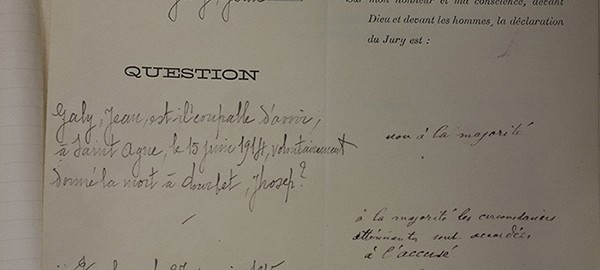 Galy, Jean
Sur mon honneur et ma conscience, devant
Dieu et devant les hommes, la déclaration
du Jury est :
QUESTION
Galy, Jean, est-il coupable d'avoir,
à Saint Agne, le 15 juin 1914, volontairement
donné la mort à Jhosep ?
non à la majorité
à la majorité les circonstances
atténuantes sont accordées
à l'accusé